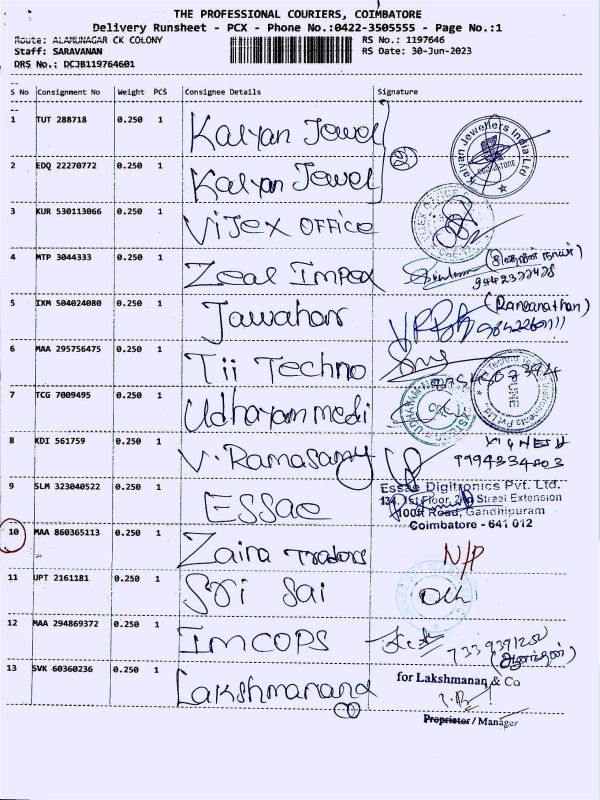 THE PROFESSIONAL COURIERS, COIMBATORE
Delivery Runsheet - PCX - Phone No.:0422-3505555 - Page No.:1
Route: ALAMUNAGAR CK COLONY RS No.: 1197646
Staff: SARAVANAN RS Date: 30-Jun-2023
DRS No.: DCJB119764601
S No Consignment No Weight PCS Consignee Details Signature
1 TUT 288718 0.250 1 Kalyan Jewel
Kalyan Jewellers India Ltd COIMBATORE
2 EDQ 22270772 0.250 1 Kalyan Jewel
3 KUR 530113066 0.250 1 Vijex OFFICE
4 MTP 3044333 0.250 1 Zeal Impex
5 IXM 504024080 0.250 1 Jawahar (Ranganathan)
6 MAA 295756475 0.250 1 Tii Techno
PUNE
7 TCG 7009495 0.250 1 Udhayam medi
8 KDI 561759 0.250 1 V. Ramasamy VIGNESH
9994334203
9 SLM 323040522 0.250 1 ESSae
Essae Digitronics Pvt. Ltd.
134, 1st Floor, 2nd Street Extension
100ft Road, Gandhipuram
Coimbatore - 641 012
10 MAA 860365113 0.250 1 Zaira Traders N/P
11 UPT 2161181 0.250 1 Sri Sai
12 MAA 294869372 0.250 1 IMCOPS 7339391252
13 SVK 60360236 0.250 1 Lakshmanana
for Lakshmanan & Co
Proprietor / Manager